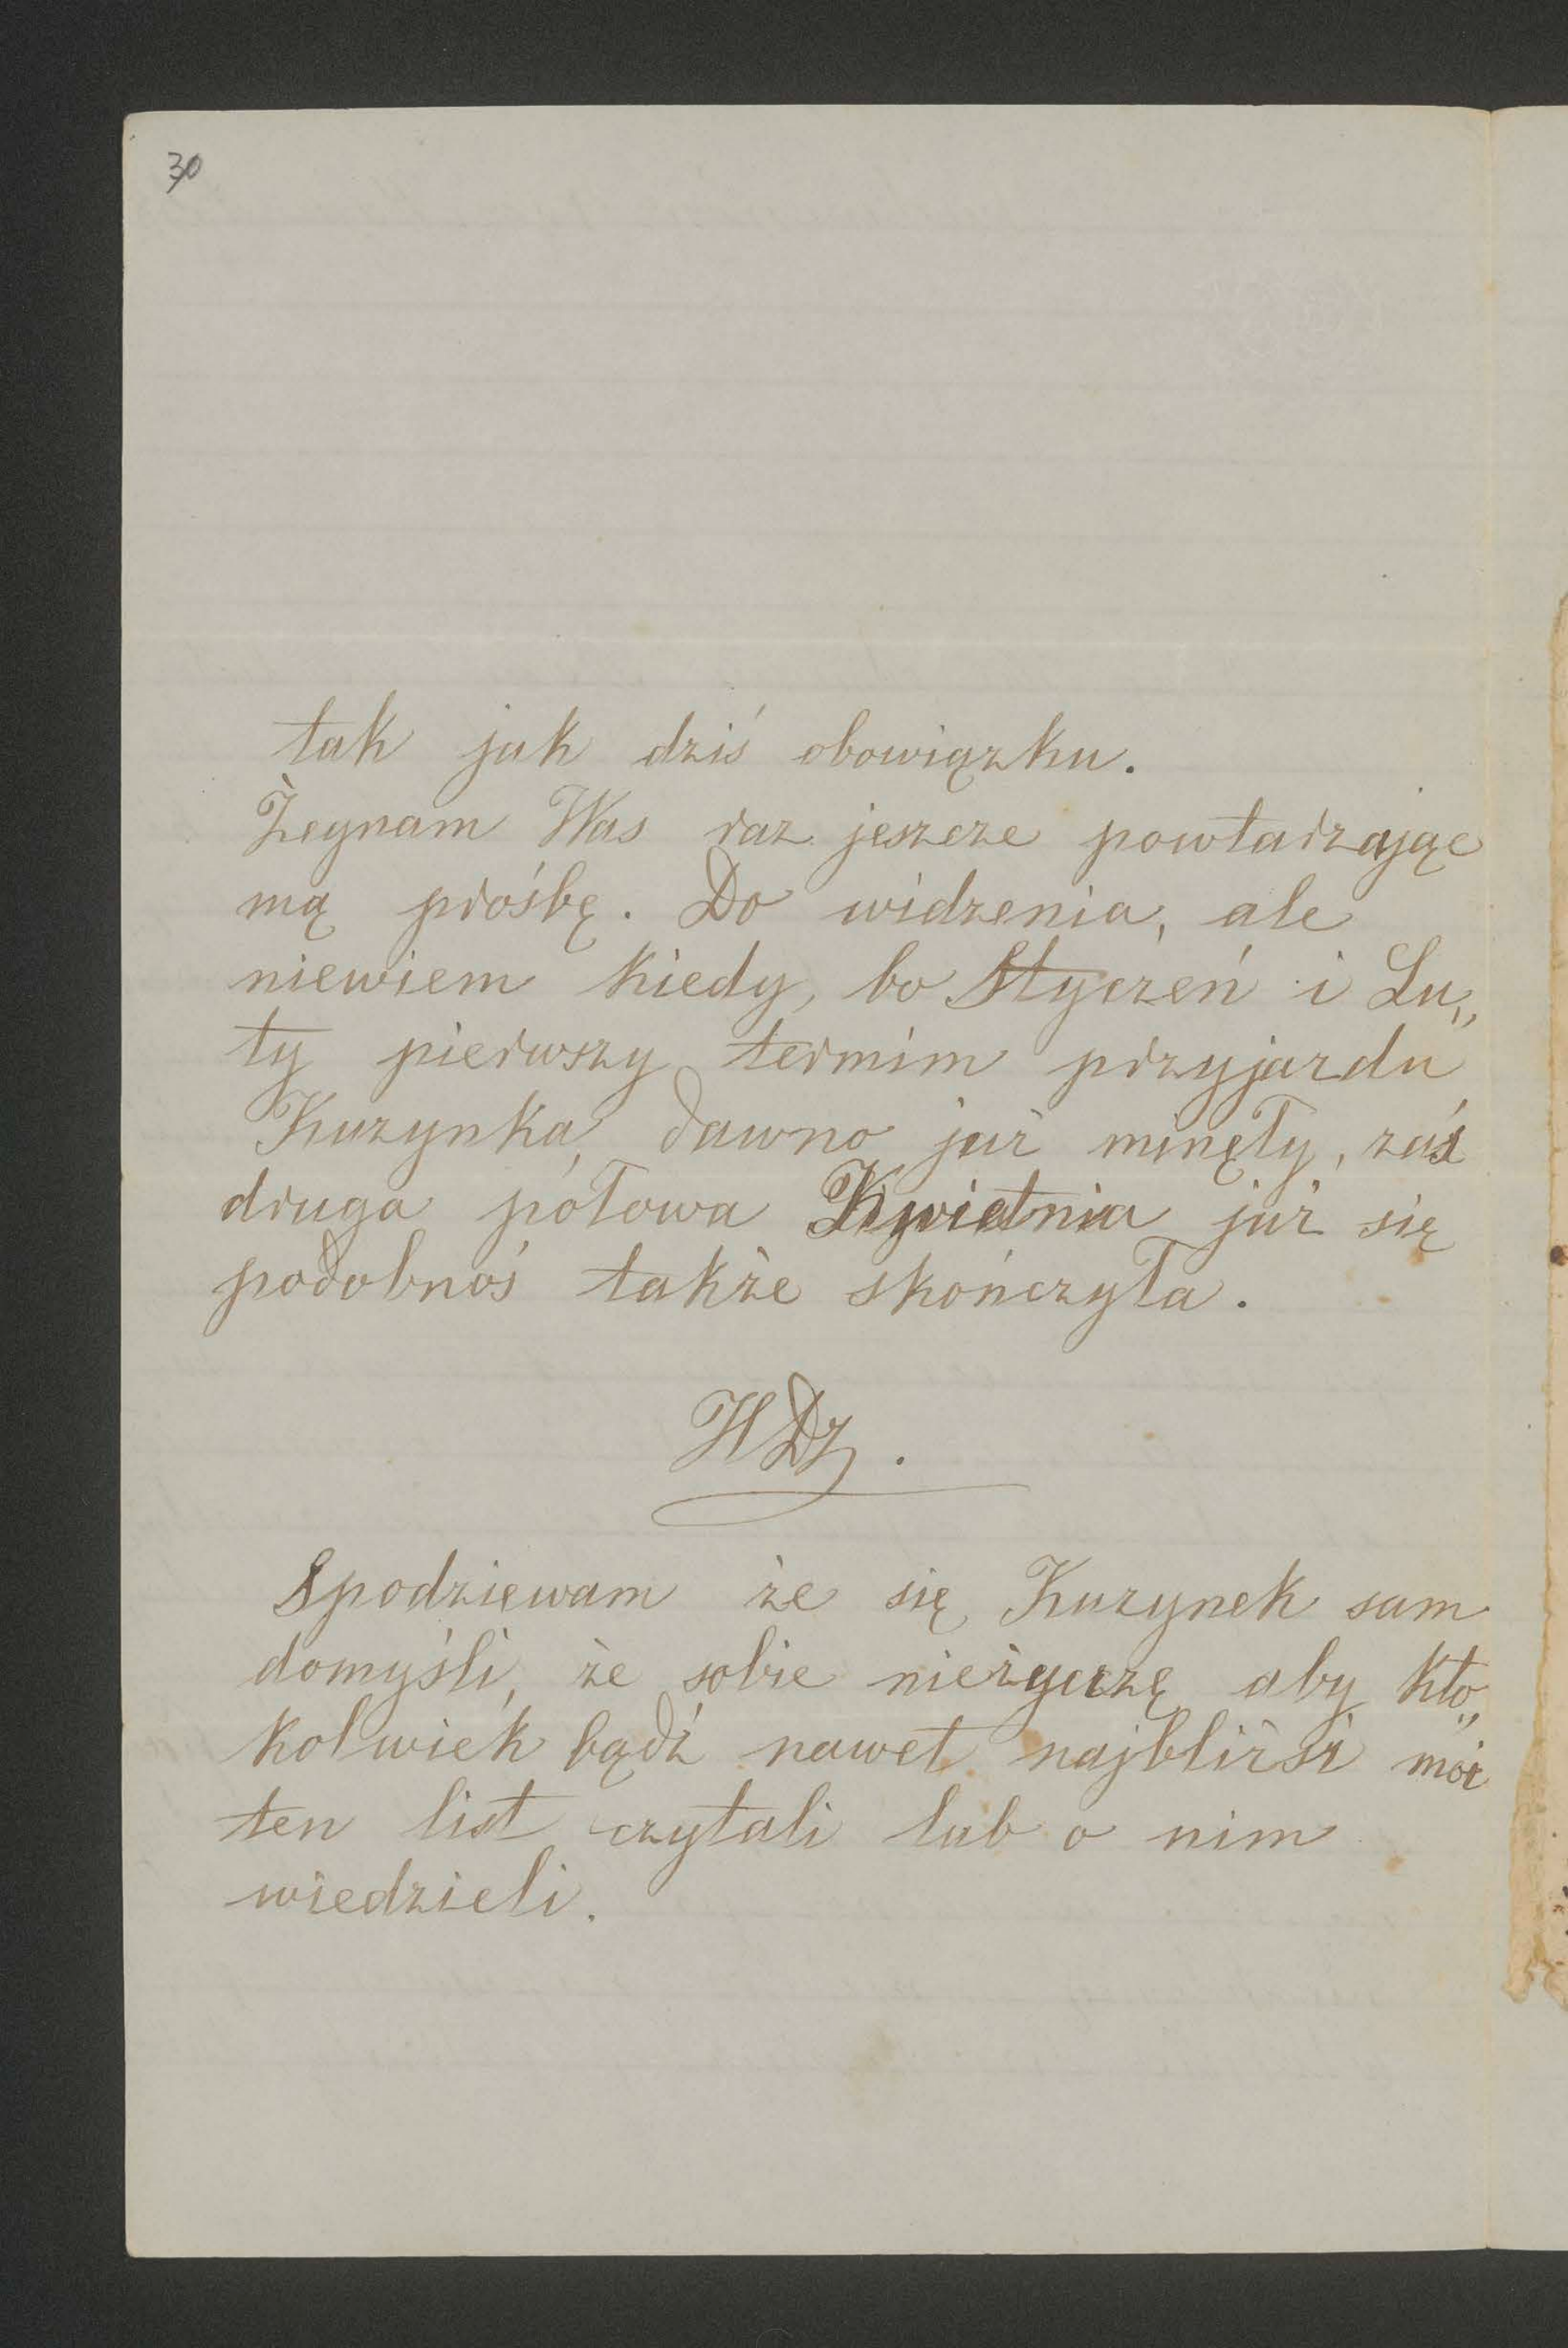 30
tak jak dziś obowiązku.
Żegnam Was raz jeszcze powtarzając
mą prośbę. Do widzenia, ale
niewiem kiedy, bo Styczeń i Lu„
ty pierwszy termim przyjazdu
Kuzynka, dawno już minęły, zaś
druga połowa Kwietnia już się
podobnoś także skończyła.
HDz.
Spodziewam że się Kuzynek sam
domyśli, że sobie nieżyczę aby kto„
kolwiek bądź nawet najbliżsi moi
ten list czytali lub o nim
wiedzieli.